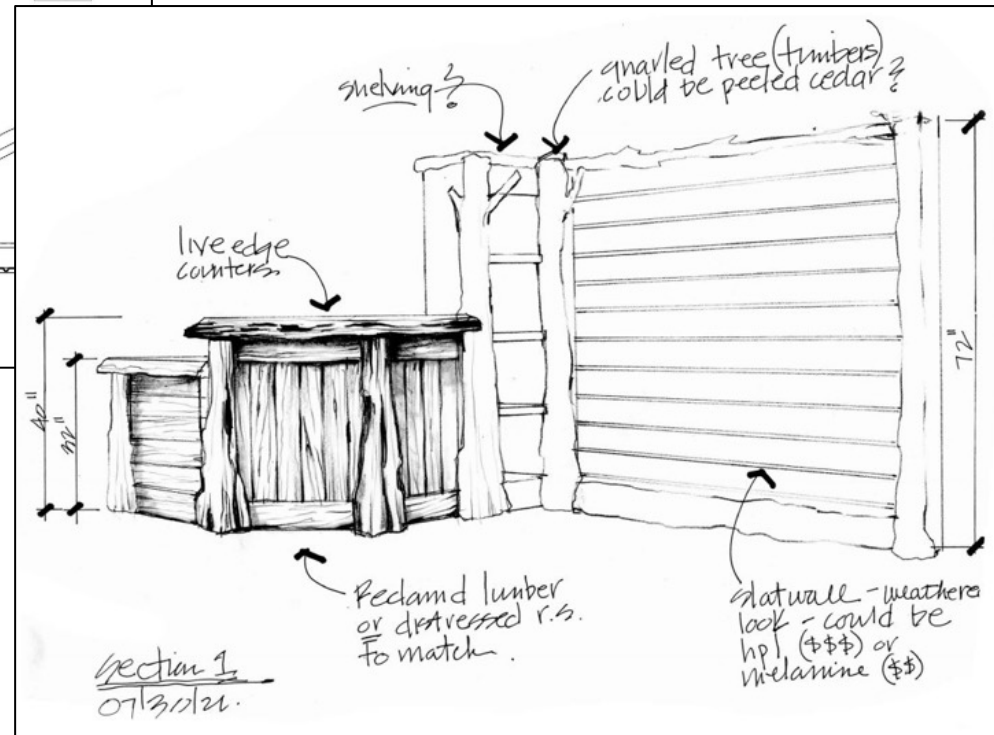 shelving?
gnarled tree (timbers)
could be peeled cedar?
live edge
counters
40"
32"
72"
Reclamd lumber
or distressed r.s.
to match.
slatwall - weathere
look - could be
hpl ($$$) or
melamine ($$)
section 1